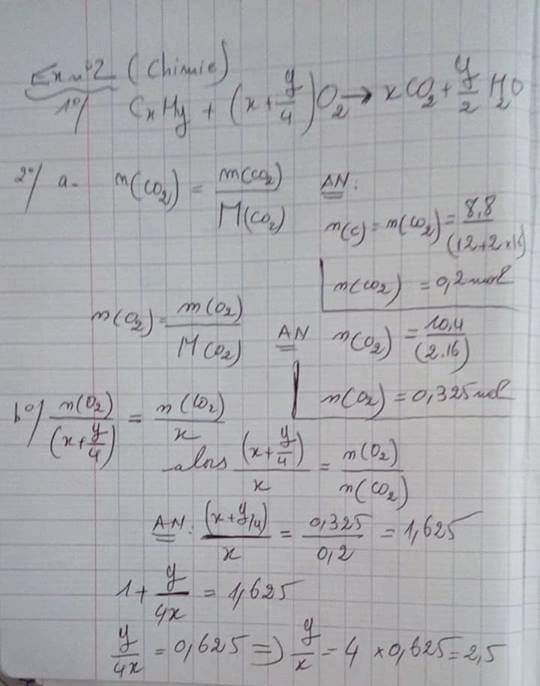 Ex n°2 (Chimie)
1°/ CxHy + (x + y/4) O2 → xCO2 + y/2 H2O
2°/ a- n(CO2) = m(CO2)/M(CO2) AN:
n(C) = n(CO2) = 8,8/(12+2×16)
n(CO2) = 0,2 mol
n(O2) = m(O2)/M(O2) AN n(O2) = 10,4/(2.16)
n(O2) = 0,325 mol
b°/ n(O2)/(x + y/4) = n(CO2)/x
alors (x + y/4)/x = n(O2)/n(CO2)
AN: (x + y/4)/x = 0,325/0,2 = 1,625
1 + y/4x = 1,625
y/4x = 0,625 ⇒ y/x = 4 × 0,625 = 2,5